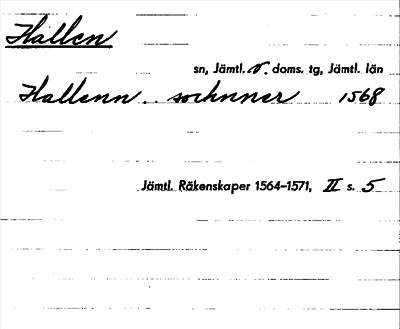 Hallen
sn, Jämtl. v. doms. tg, Jämtl. län
Hallenn sochnner 1568
Jämtl. Räkenskaper 1564-1571, II s. 5